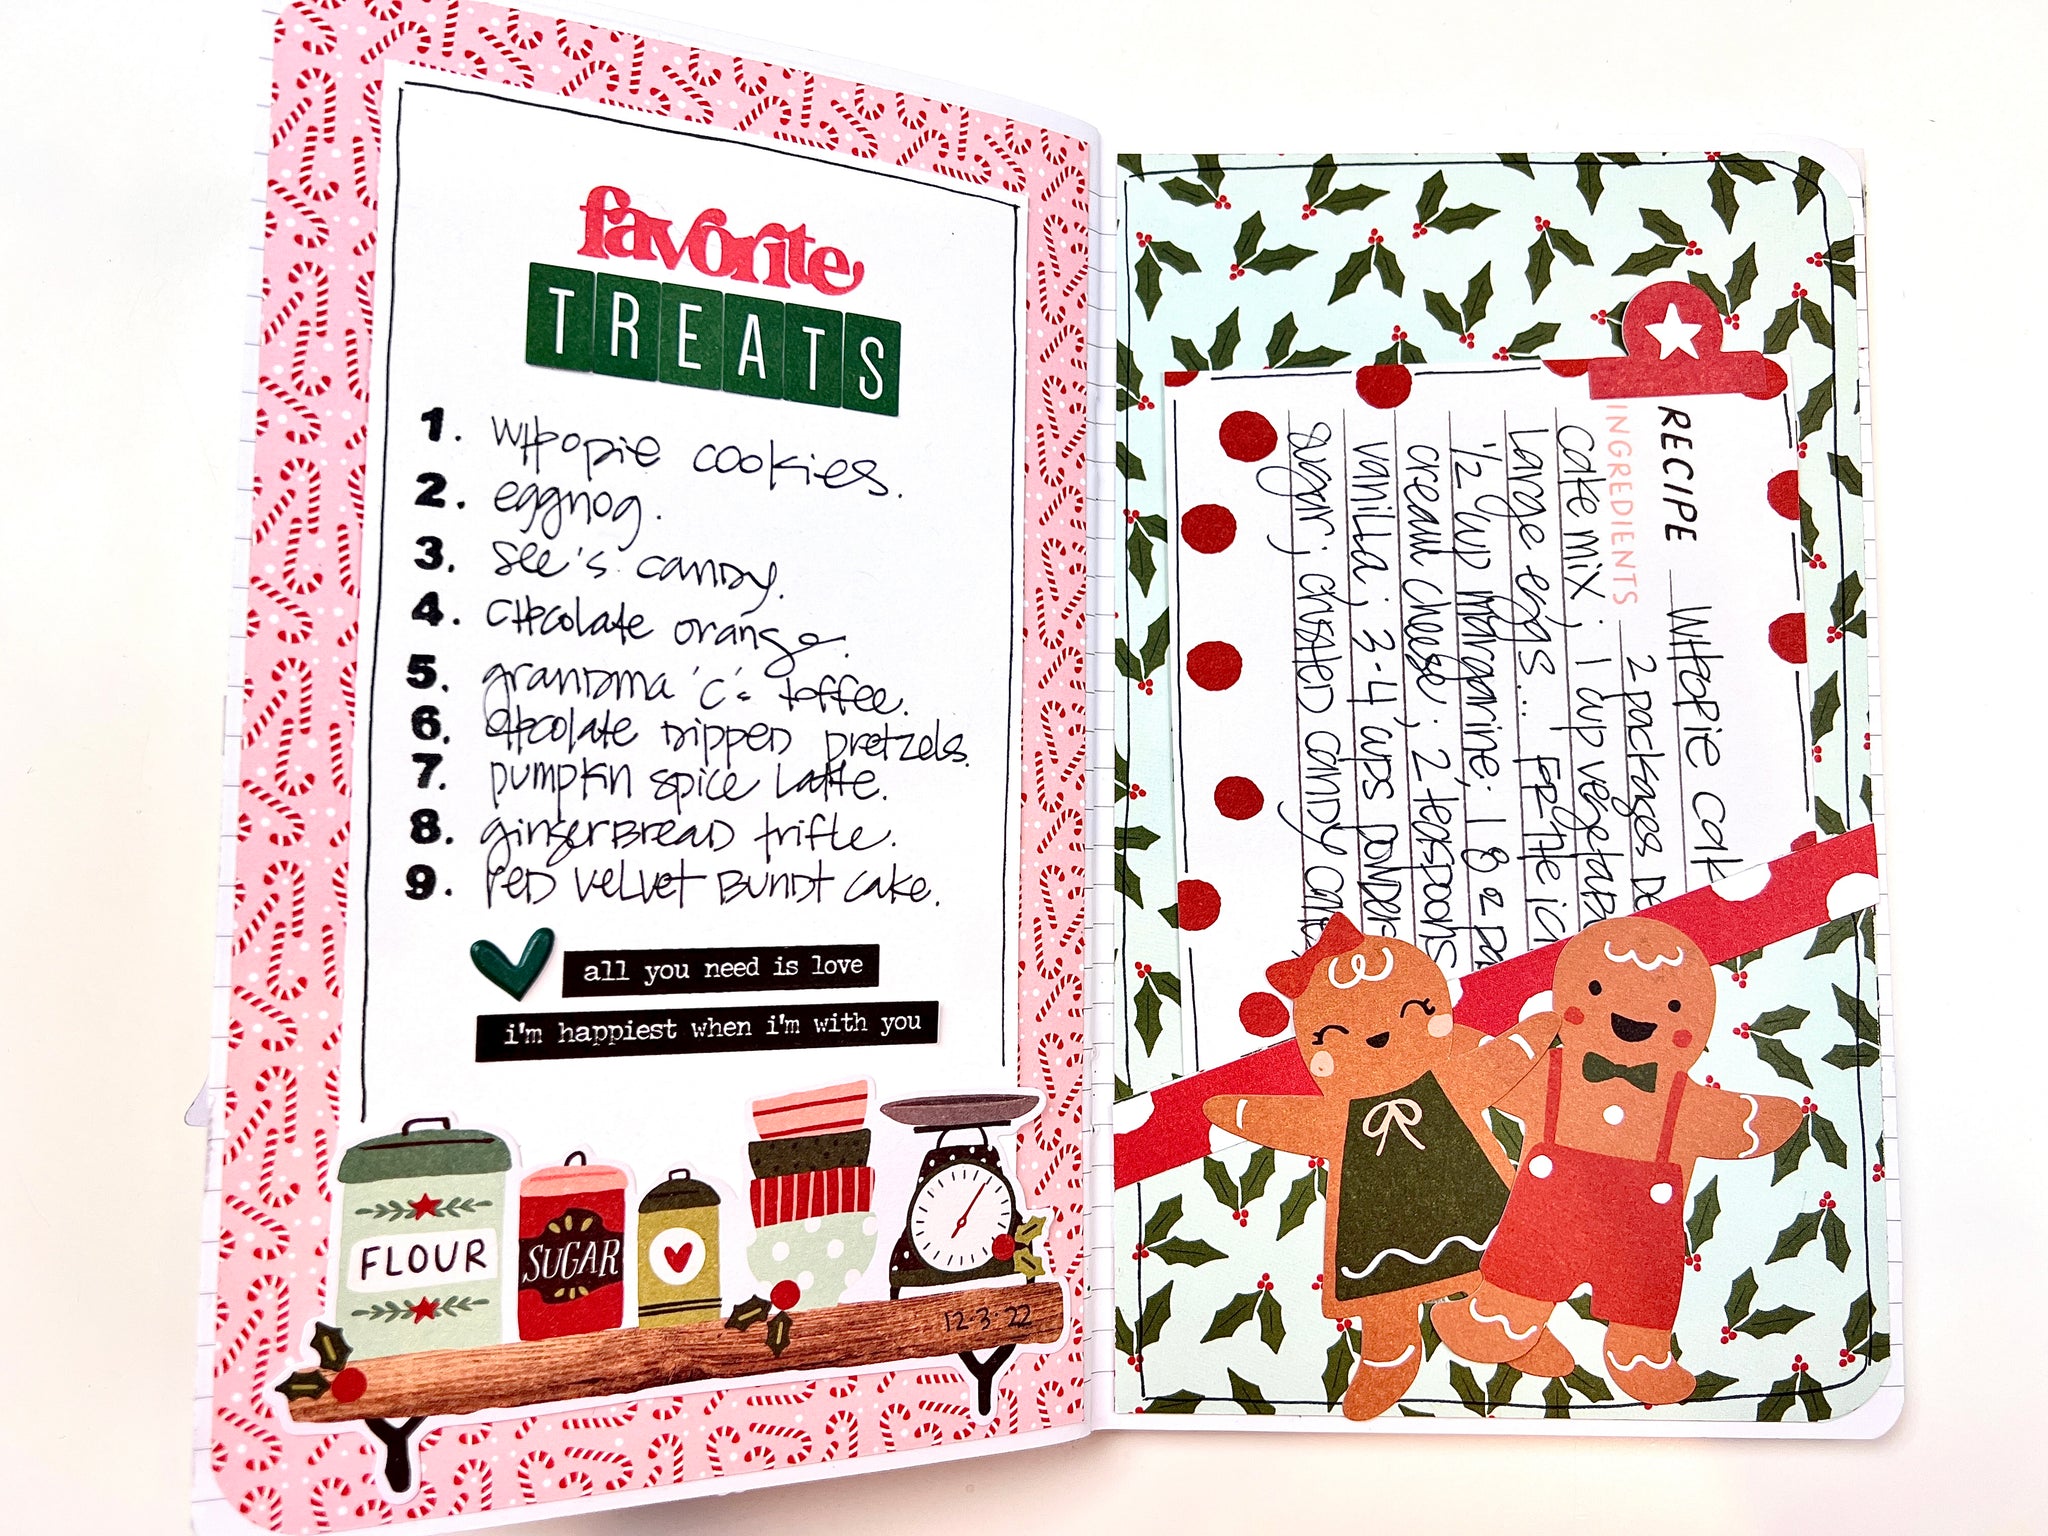 favorite
TREATS
1. WHOOPIE COOKIES.
2. eggnog.
3. see's candy.
4. CHocolate orange.
5. grandma 'c's toffee.
6. cHocolate dipped pretzels.
7. pumpkin spice latte.
8. gingerbread trifle.
9. red velvet bundt cake.
all you need is love
i'm happiest when i'm with you
FLOUR
SUGAR
12.3.22
RECIPE WHOOPIE
INGREDIENTS 2 packages
cake mix; 1 cup
large eggs... FOR THE
1/2 cup margarine; 1 8 oz
cream cheese; 2 teaspoons
vanilla; 3-4 cups
sugar; crushed candy